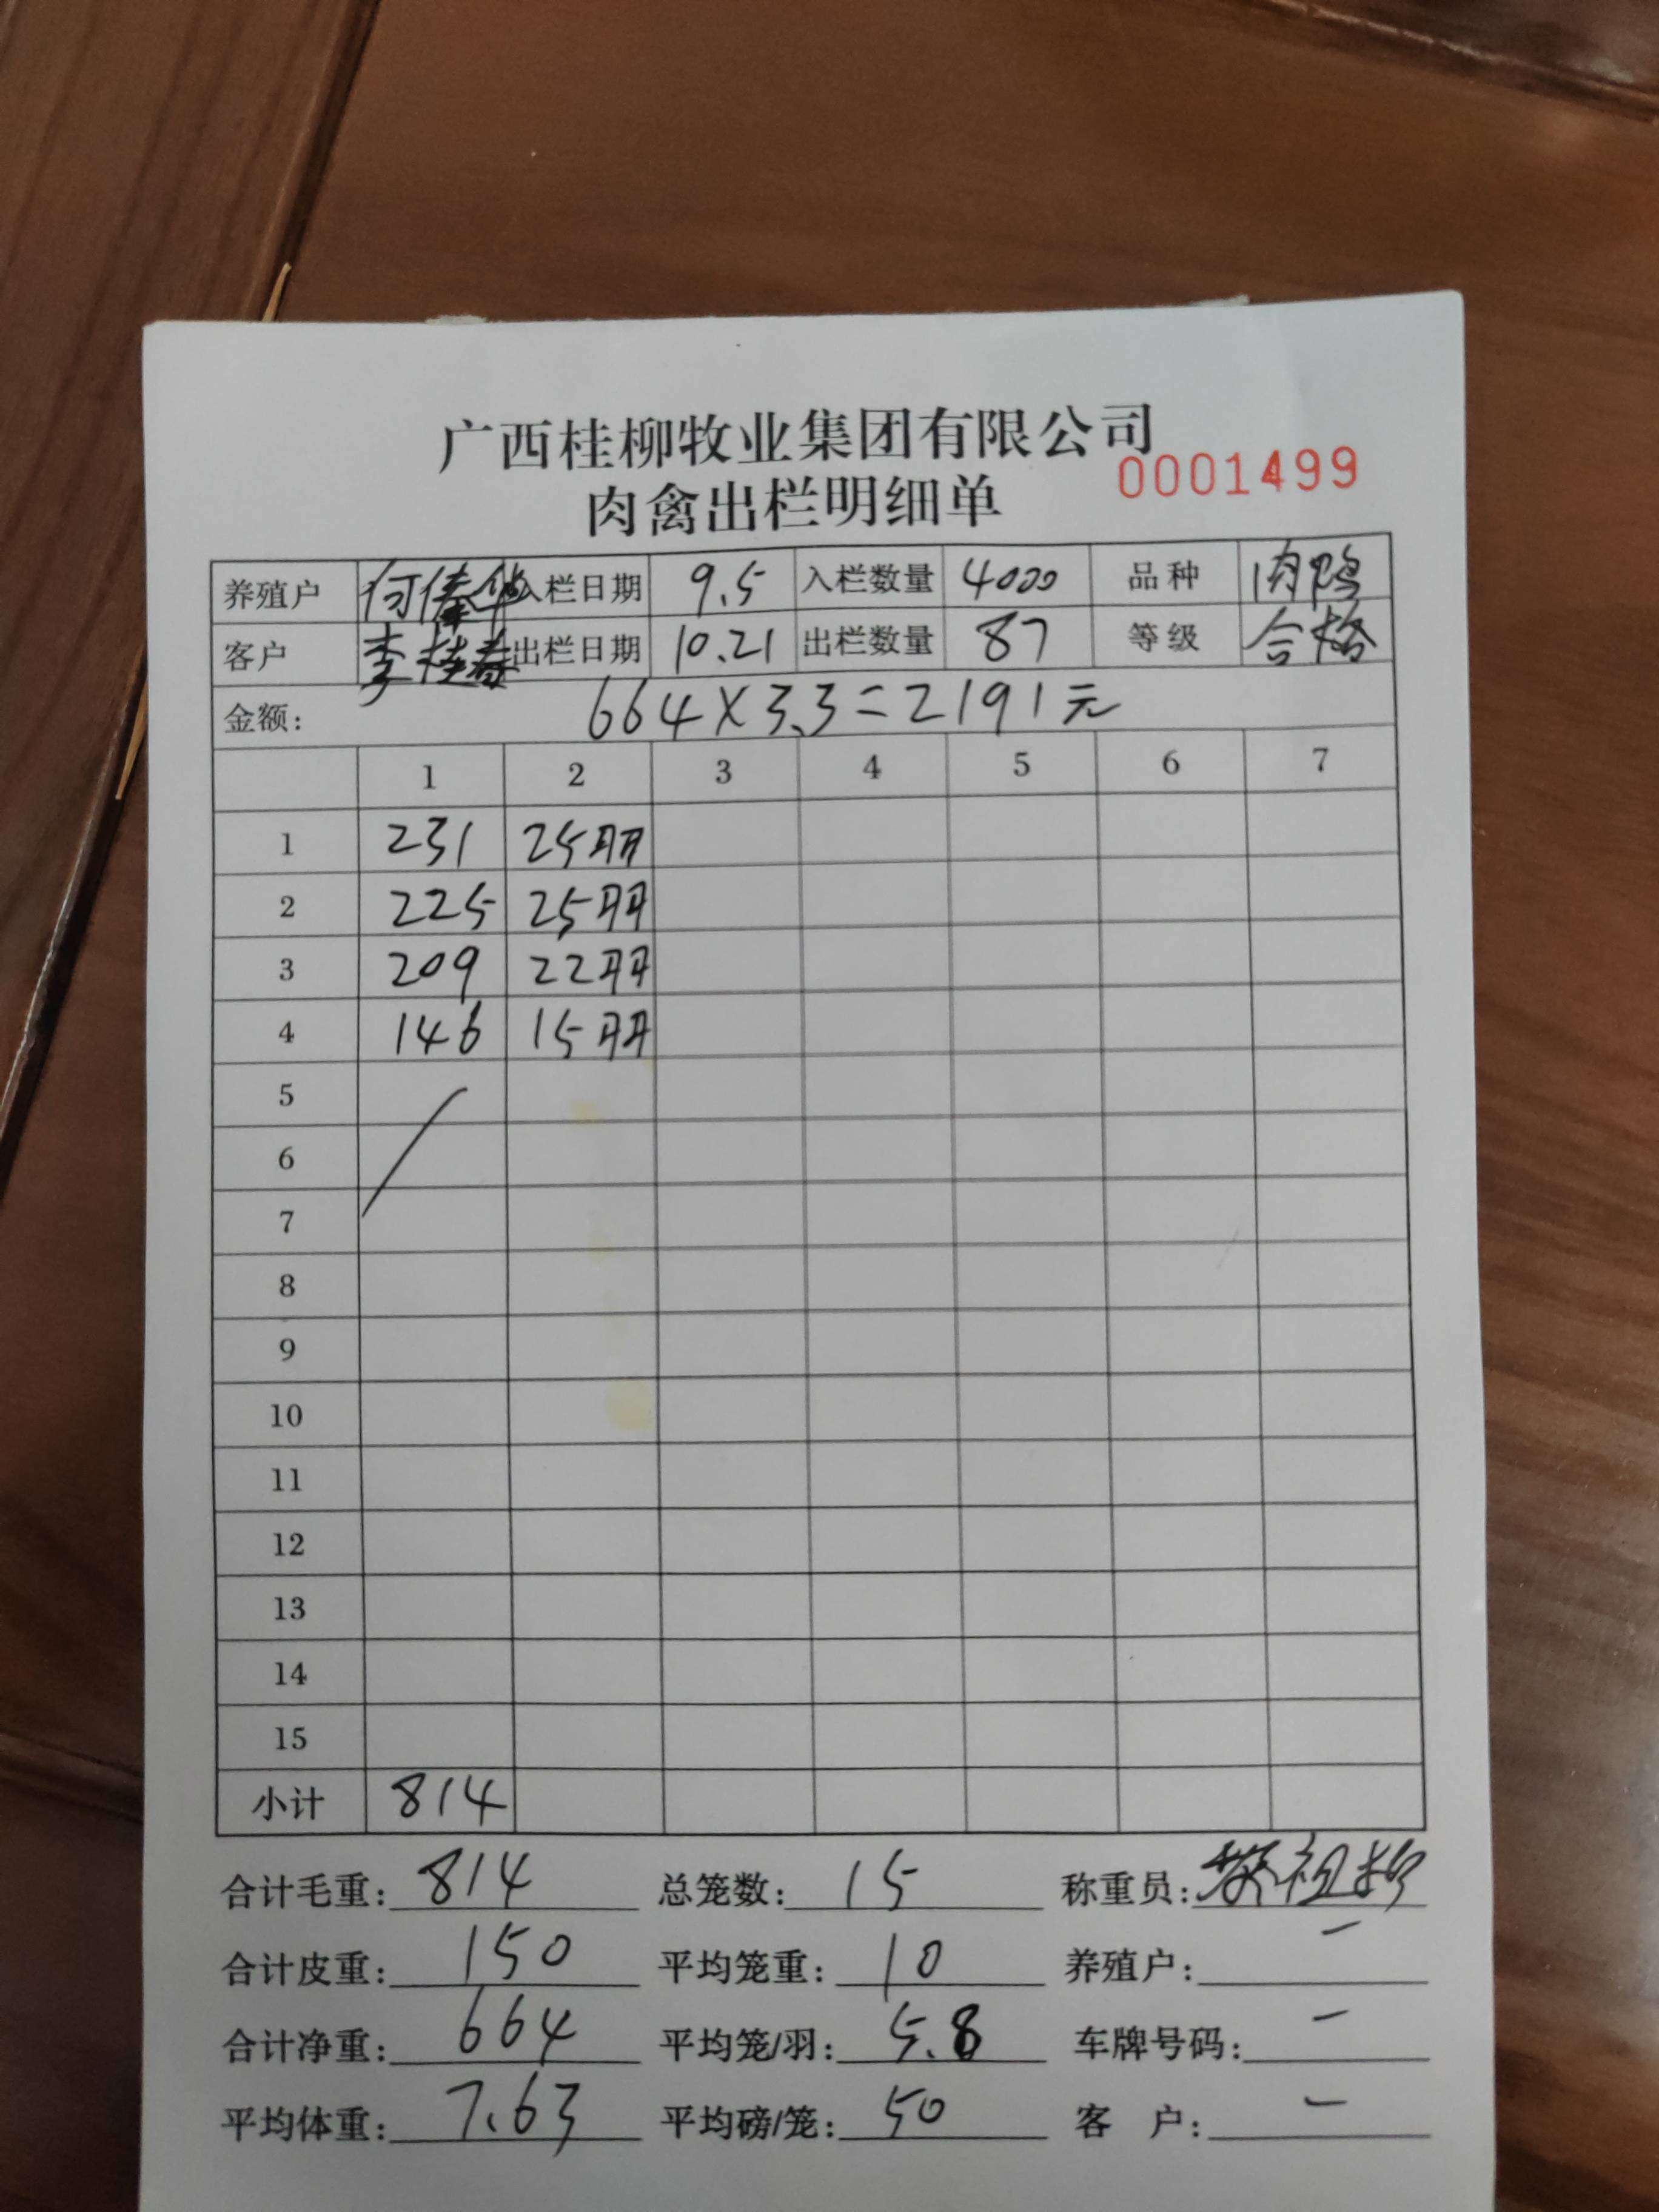 广西桂柳牧业集团有限公司
肉禽出栏明细单 0001499
养殖户 何俸华 入栏日期 9.5 入栏数量 4000 品种 肉鸭
客户 李桂春 出栏日期 10.21 出栏数量 87 等级 合格
金额: 664×3.3=2191元
1 2 3 4 5 6 7
1 231 25羽
2 225 25羽
3 209 22羽
4 146 15羽
5
6
7
8
9
10
11
12
13
14
15
小计 814
合计毛重: 814 总笼数: 15 称重员:
合计皮重: 150 平均笼重: 10 养殖户: —
合计净重: 664 平均笼/羽: 5.8 车牌号码: —
平均体重: 7.63 平均磅/笼: 50 客 户: —